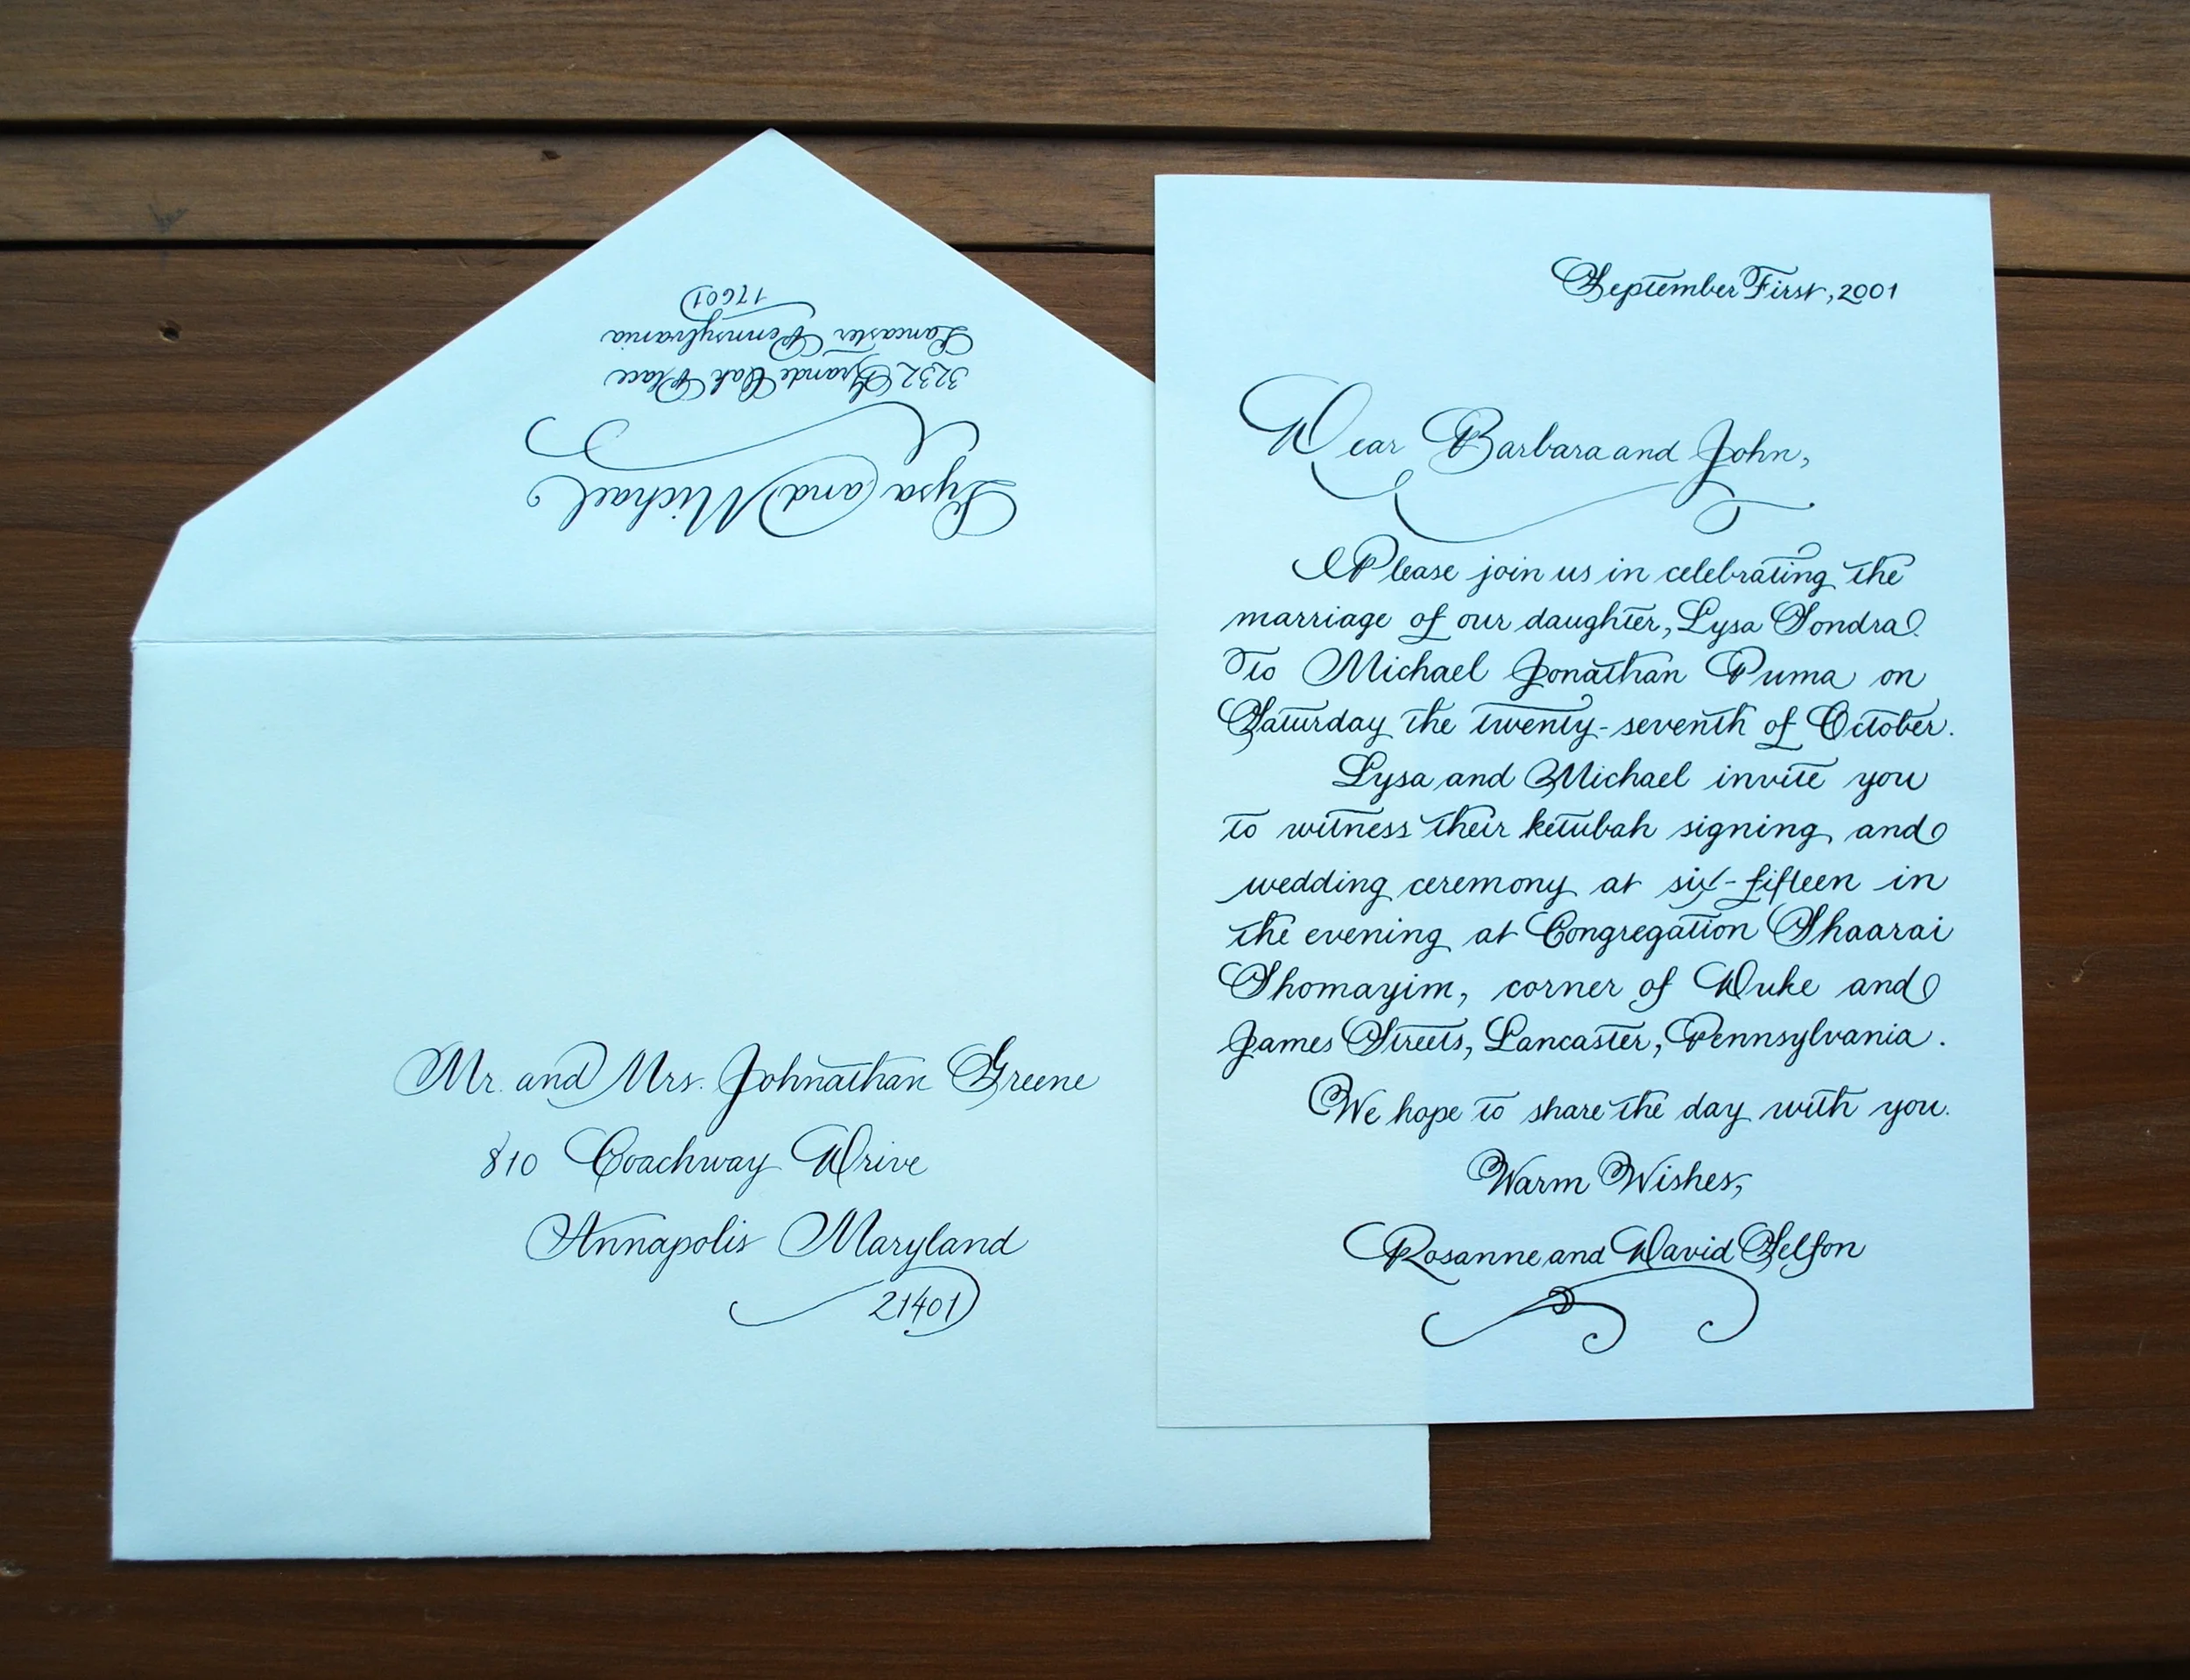 Lysa and Michael
3232 Grande Oak Place
Lancaster Pennsylvania
17601
Mr. and Mrs. Johnathan Greene
810 Coachway Drive
Annapolis Maryland
21401
September First, 2001
Dear Barbara and John,
Please join us in celebrating the
marriage of our daughter, Lysa Sondra
to Michael Jonathan Puma on
Saturday the twenty-seventh of October.
Lysa and Michael invite you
to witness their ketubah signing and
wedding ceremony at six-fifteen in
the evening at Congregation Shaarai
Shomayim, corner of Duke and
James Streets, Lancaster, Pennsylvania.
We hope to share the day with you.
Warm Wishes,
Rosanne and David Selfon